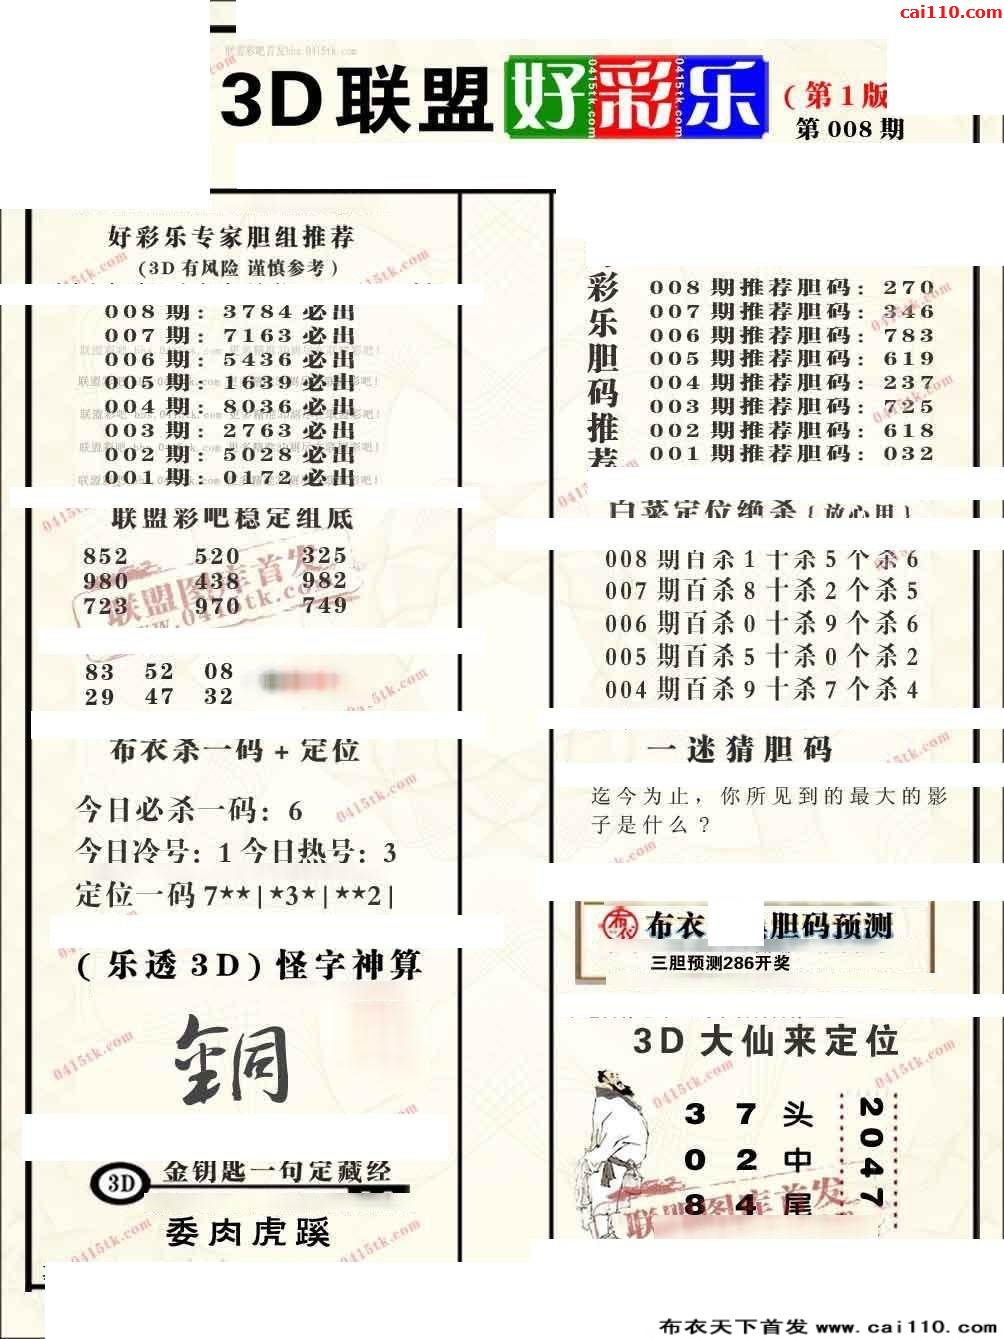 cai110.com
3D联盟好彩乐
(第1版
第008期
好彩乐专家胆组推荐
(3D有风险 谨慎参考)
008期: 3784必出
007期: 7163必出
006期: 5436必出
005期: 1639必出
004期: 8036必出
003期: 2763必出
002期: 5028必出
001期: 0172必出
联盟彩吧稳定组底
852 520 325
980 438 982
723 970 749
83 52 08
29 47 32
布衣杀一码+定位
今日必杀一码: 6
今日冷号: 1 今日热号: 3
定位一码 7**|*3*|**2|
(乐透3D)怪字神算
銅
3D 金钥匙一句定藏经
委肉虎蹊
彩乐胆码推荐
008期推荐胆码: 270
007期推荐胆码: 346
006期推荐胆码: 783
005期推荐胆码: 619
004期推荐胆码: 237
003期推荐胆码: 725
002期推荐胆码: 618
001期推荐胆码: 032
白菜定位绝杀(放心用)
008期百杀1十杀5个杀6
007期百杀8十杀2个杀5
006期百杀0十杀9个杀6
005期百杀5十杀0个杀2
004期百杀9十杀7个杀4
一迷猜胆码
迄今为止，你所见到的最大的影
子是什么?
布衣 胆码预测
三胆预测286开奖
3D大仙来定位
3 7 头
0 2 中
8 4 尾
2047
联盟图库首发
0415tk.com
布衣天下首发 www.cai110.com